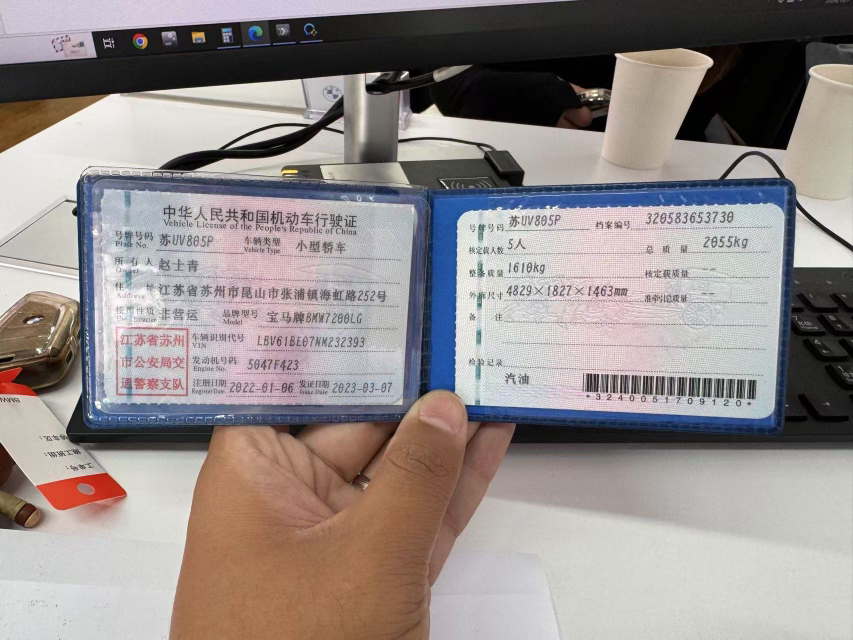 中华人民共和国机动车行驶证
Vehicle License of the People's Republic of China
号牌号码 苏UV805P 车辆类型 小型轿车
Plate No. Vehicle Type
所有人 赵士青
Owner
住址 江苏省苏州市昆山市张浦镇海虹路252号
Address
使用性质 非营运 品牌型号 宝马牌BMW7200LG
Model
江苏省苏州
市公安局交
通警察支队
车辆识别代号 LBV61BL07NM232393
VIN
发动机号码 5047F423
Engine No.
注册日期 2022-01-06 发证日期 2023-03-07
Register Date Issue Date
号牌号码 苏UV805P 档案编号 320583653730
核定载人数 5人 总质量 2055kg
整备质量 1610kg 核定载质量 --
外廓尺寸 4829×1827×1463mm 准牵引总质量 --
备注
检验记录
汽油
*3240051709120*
工单号: